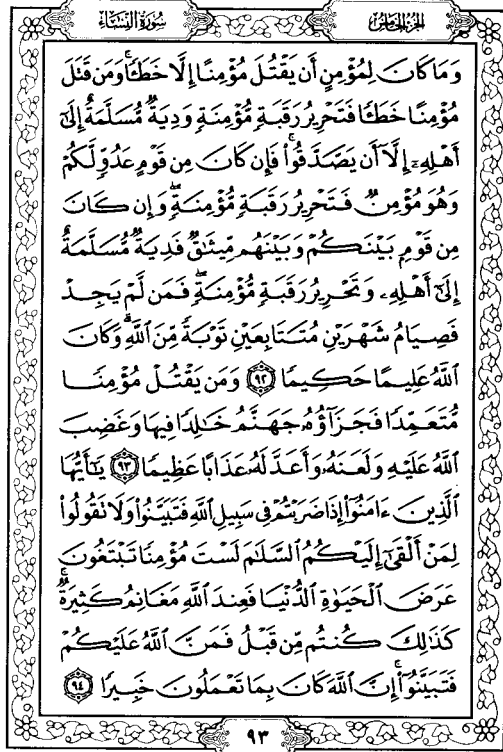 الجزء الخامس
سورة النساء
وَمَا كَانَ لِمُؤْمِنٍ أَن يَقْتُلَ مُؤْمِنًا إِلَّا خَطَـًٔا ۚ وَمَن قَتَلَ
مُؤْمِنًا خَطَـًٔا فَتَحْرِيرُ رَقَبَةٍ مُّؤْمِنَةٍ وَدِيَةٌ مُّسَلَّمَةٌ إِلَىٰٓ
أَهْلِهِۦٓ إِلَّآ أَن يَصَّدَّقُوا۟ ۚ فَإِن كَانَ مِن قَوْمٍ عَدُوٍّ لَّكُمْ
وَهُوَ مُؤْمِنٌ فَتَحْرِيرُ رَقَبَةٍ مُّؤْمِنَةٍ ۖ وَإِن كَانَ
مِن قَوْمٍۭ بَيْنَكُمْ وَبَيْنَهُم مِّيثَـٰقٌ فَدِيَةٌ مُّسَلَّمَةٌ
إِلَىٰٓ أَهْلِهِۦ وَتَحْرِيرُ رَقَبَةٍ مُّؤْمِنَةٍ ۖ فَمَن لَّمْ يَجِدْ
فَصِيَامُ شَهْرَيْنِ مُتَتَابِعَيْنِ تَوْبَةً مِّنَ ٱللَّهِ ۗ وَكَانَ
ٱللَّهُ عَلِيمًا حَكِيمًا ٩٢ وَمَن يَقْتُلْ مُؤْمِنًا
مُّتَعَمِّدًا فَجَزَآؤُهُۥ جَهَنَّمُ خَـٰلِدًا فِيهَا وَغَضِبَ
ٱللَّهُ عَلَيْهِ وَلَعَنَهُۥ وَأَعَدَّ لَهُۥ عَذَابًا عَظِيمًا ٩٣ يَـٰٓأَيُّهَا
ٱلَّذِينَ ءَامَنُوٓا۟ إِذَا ضَرَبْتُمْ فِى سَبِيلِ ٱللَّهِ فَتَبَيَّنُوا۟ وَلَا تَقُولُوا۟
لِمَنْ أَلْقَىٰٓ إِلَيْكُمُ ٱلسَّلَـٰمَ لَسْتَ مُؤْمِنًا تَبْتَغُونَ
عَرَضَ ٱلْحَيَوٰةِ ٱلدُّنْيَا فَعِندَ ٱللَّهِ مَغَانِمُ كَثِيرَةٌ ۚ
كَذَٰلِكَ كُنتُم مِّن قَبْلُ فَمَنَّ ٱللَّهُ عَلَيْكُمْ
فَتَبَيَّنُوٓا۟ ۚ إِنَّ ٱللَّهَ كَانَ بِمَا تَعْمَلُونَ خَبِيرًا ٩٤
٩٣